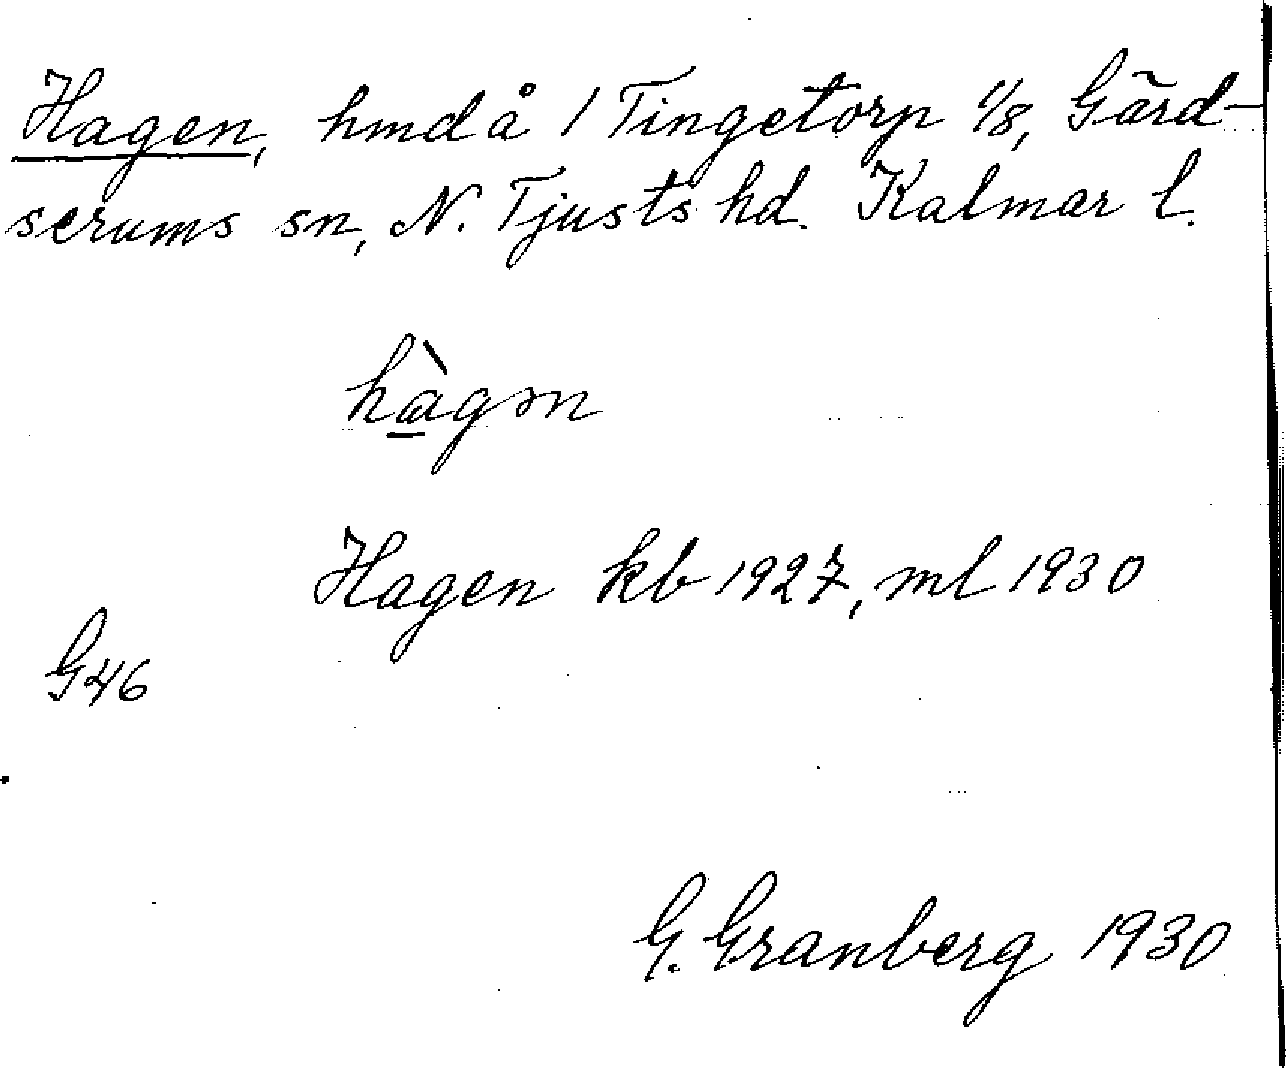 Hagen, hmd å 1 Tingetorp 1/8, Gärd-
serums sn, N. Tjusts hd. Kalmar l.
hàgən
Hagen kb 1927, ml 1930
G46
G. Granberg 1930